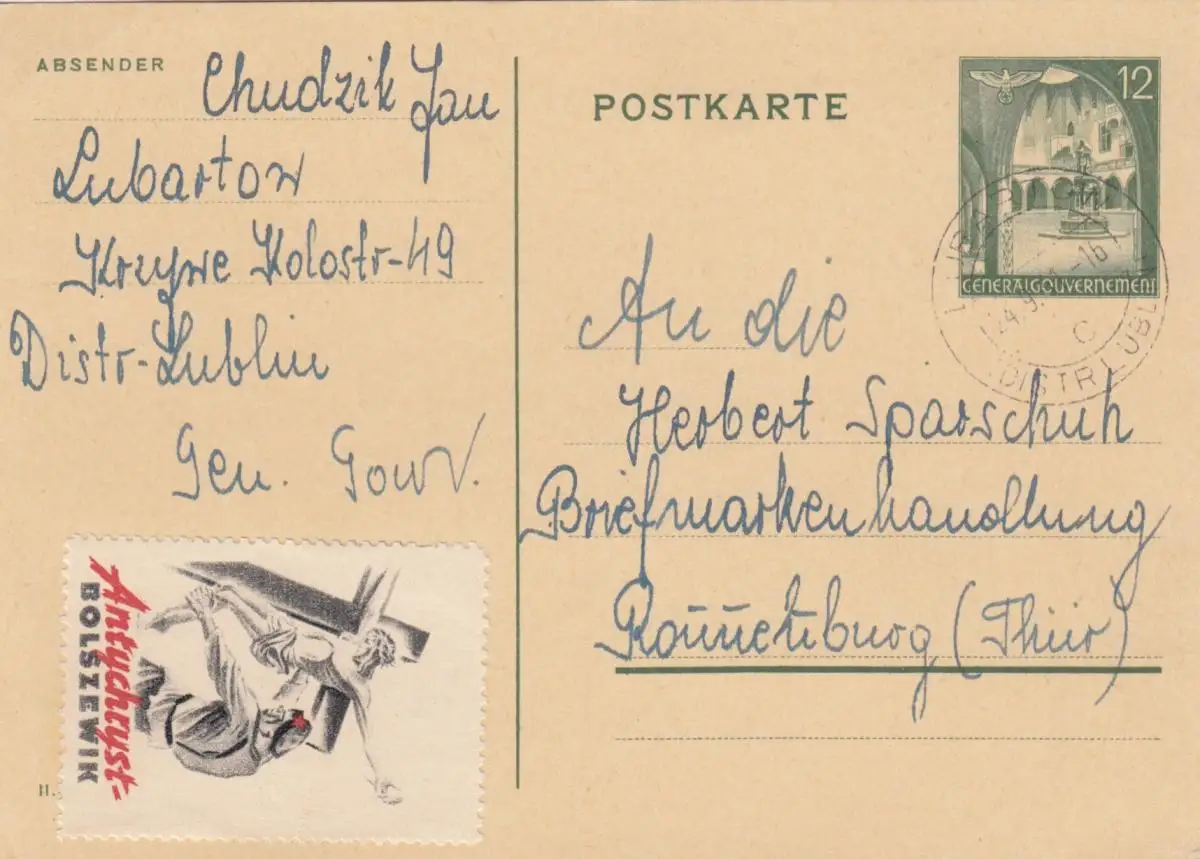 ABSENDER
Chudzik Jan
Lubartow
Krzywe Kolostr-49
Distr-Lublin
Gen. Gouv.
Antychryst=
BOLSZEWIK
II.
POSTKARTE
12
GENERALGOUVERNEMENT
24.9.
-16
C
DISTR LUBL
An die
Herbert Sparschuh
Briefmarkenhandlung
Ronneburg (Thür)